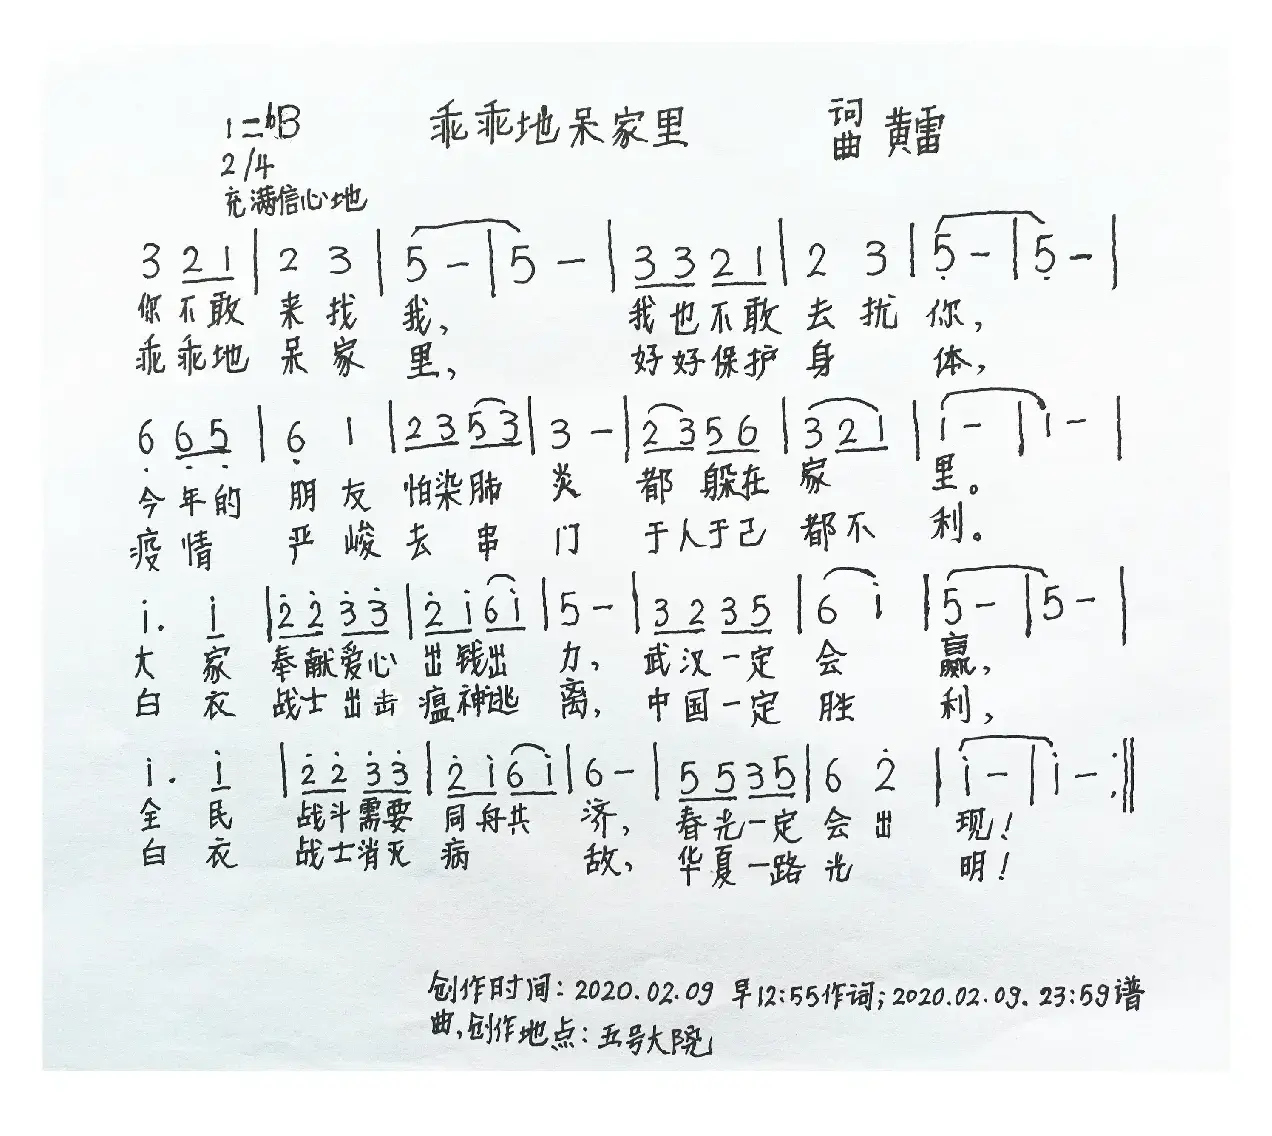 1=ᵇB 乖乖地呆家里 词曲 黄雷
2/4
充满信心地
3 2 1 | 2 3 | 5 - | 5 - | 3 3 2 1 | 2 3 | 5̣ - | 5̣ - |
你不敢 来找 我, 我也不敢 去扰 你,
乖乖地 呆家 里, 好好保护 身 体,
6̣ 6̣ 5̣ | 6̣ 1 | 2 3 5 3 | 3 - | 2 3 5 6 | 3 2 1 | i - | i - |
今年的 朋友 怕染肺 炎 都躲在 家 里。
疫情 严峻 去串 门 于人于己 都不 利。
i. i | 2̇ 2̇ 3̇ 3̇ | 2̇ i 6 i | 5 - | 3 2 3 5 | 6 i | 5 - | 5 - |
大家 奉献爱心 出钱出 力, 武汉一定 会 赢,
白衣 战士出击 瘟神逃 离, 中国一定 胜 利,
i. i | 2̇ 2̇ 3̇ 3̇ | 2̇ i 6 i | 6 - | 5 5 3 5 | 6 2̇ | i - | i - :||
全民 战斗需要 同舟共 济, 春光一定 会出 现!
白衣 战士消灭 病 敌, 华夏一路 光 明!
创作时间: 2020.02.09 早12:55作词; 2020.02.09. 23:59谱
曲, 创作地点: 五号大院